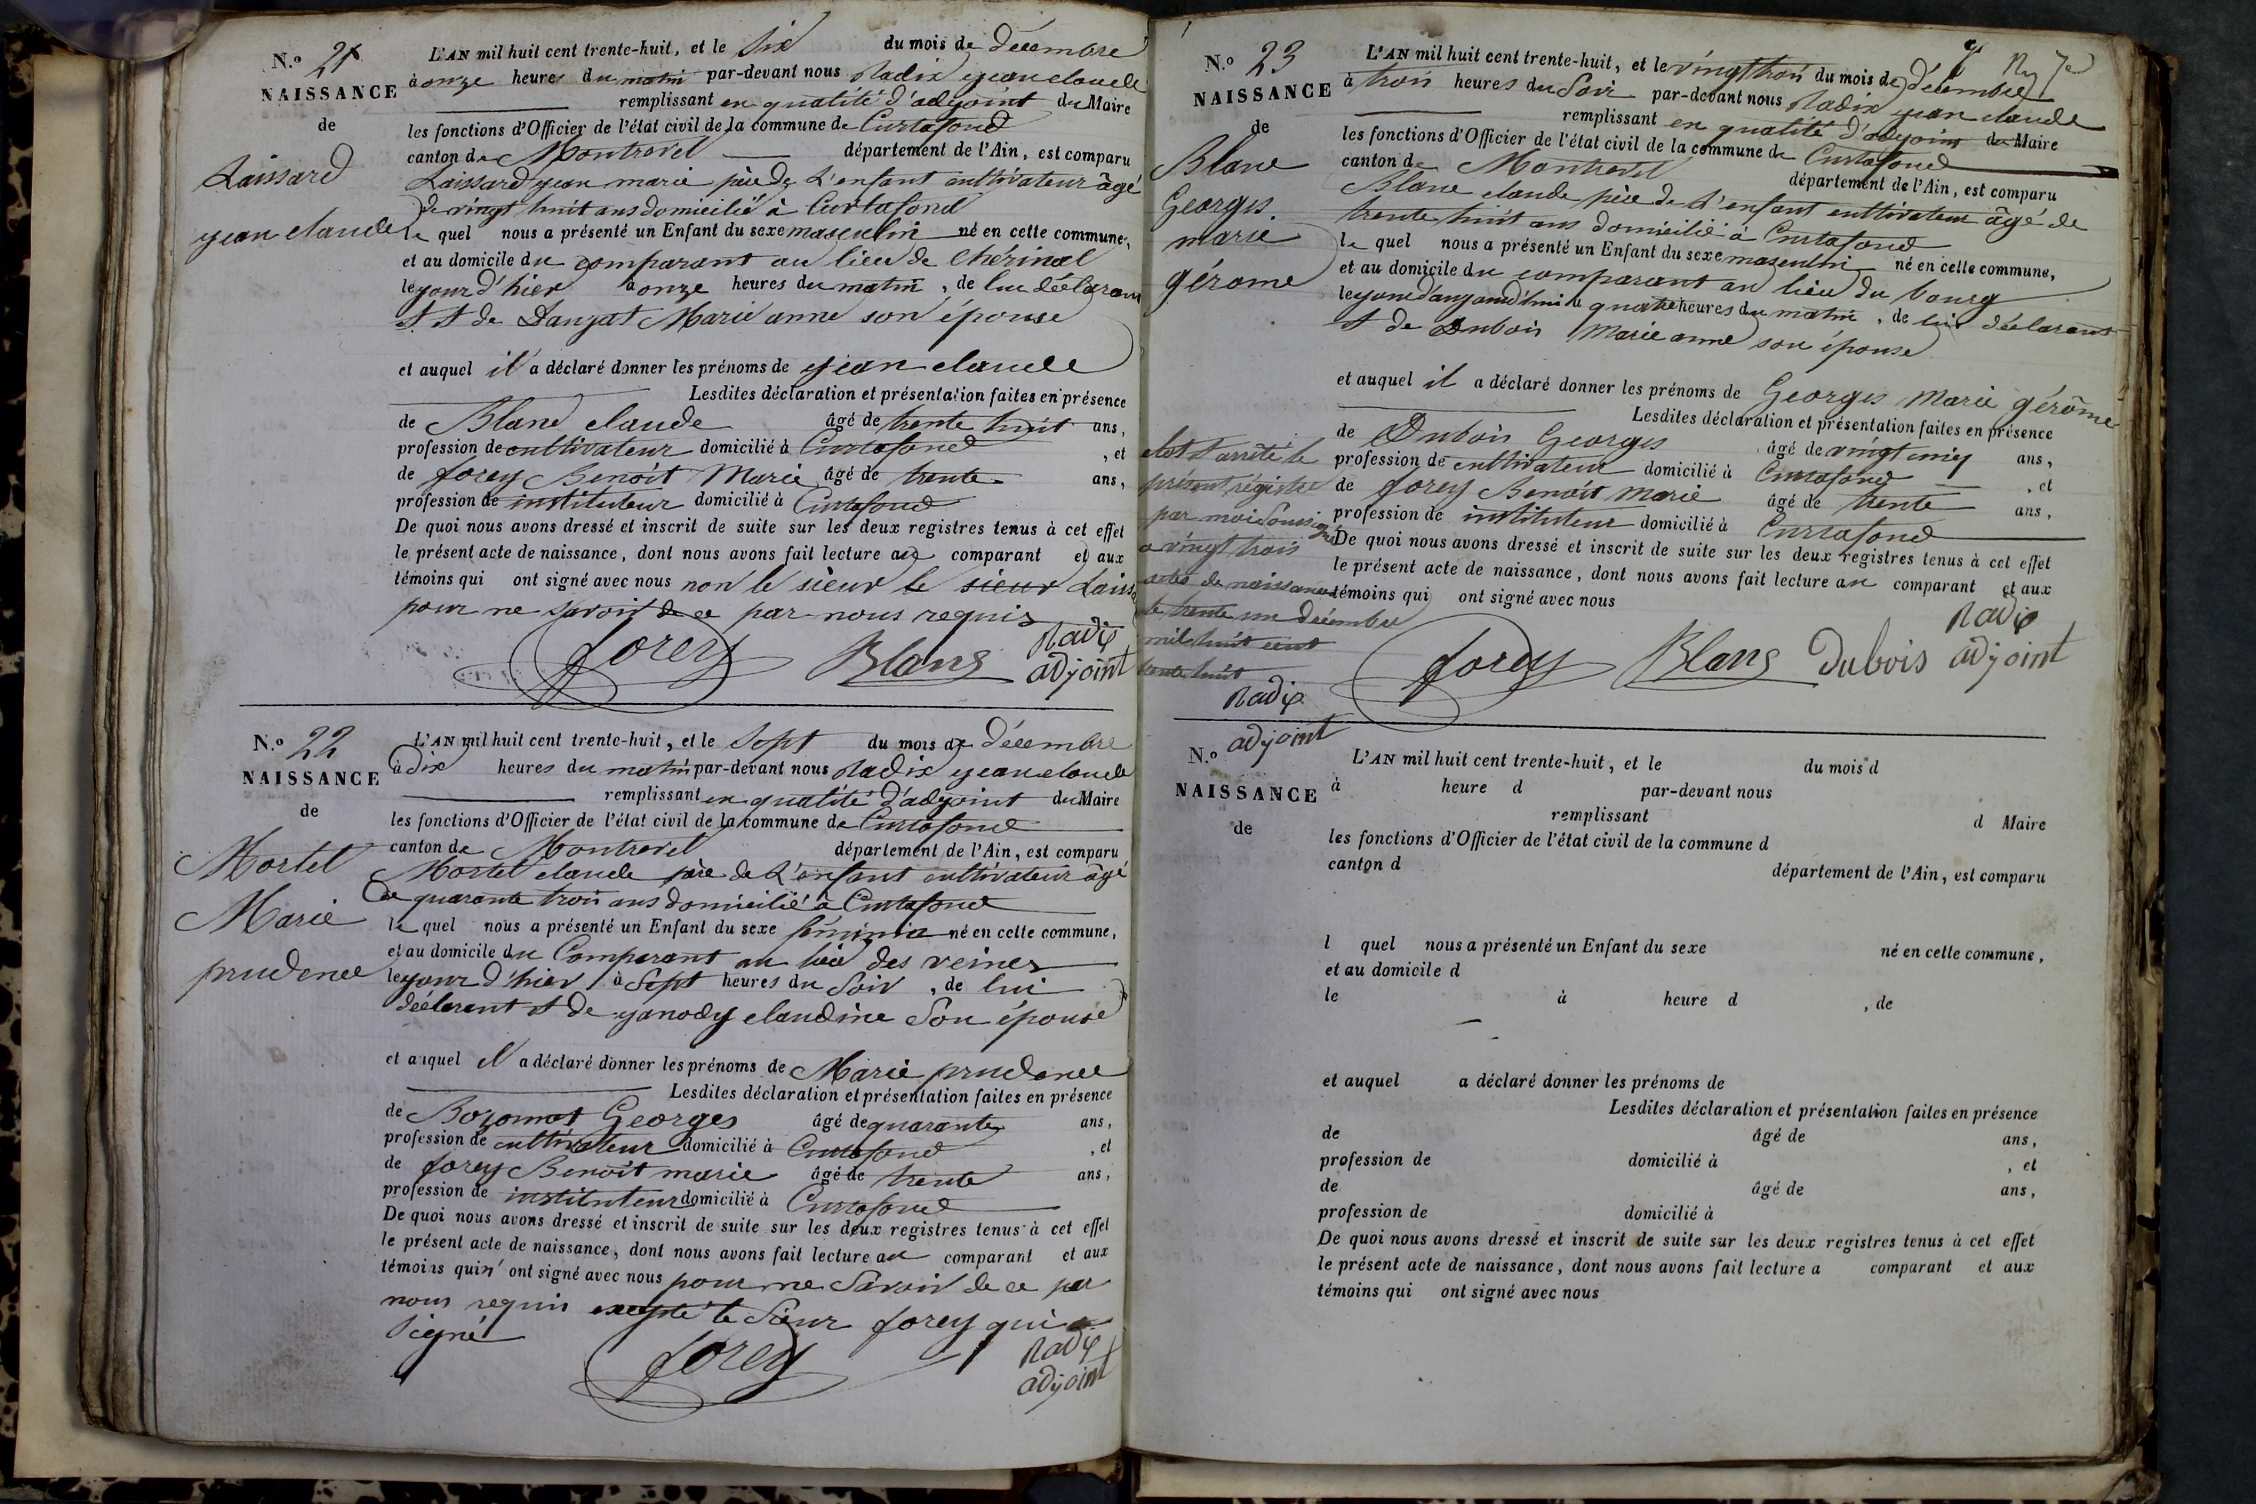 N.º 21
NAISSANCE
de
Laissard
jean claude
L'AN mil huit cent trente-huit, et le Six du mois de décembre
à onze heures du matin par-devant nous Radix jean claude
remplissant en qualité d'adjoint du Maire
les fonctions d'Officier de l'état civil de la commune de Curtafond
canton de Montrevel département de l'Ain, est comparu
Laissard jean marie père de L'enfant cultivateur âgé
de vingt huit ans domicilié à Curtafond
le quel nous a présenté un Enfant du sexe masculin né en cette commune,
et au domicile du comparant au lieu de Chérinal
le jour d'hier à onze heures du matin, de lui déclarant
et de Danjat Marie anne son épouse
et auquel il a déclaré donner les prénoms de jean claude
Lesdites déclaration et présentation faites en présence
de Blanc claude âgé de trente huit ans,
profession de cultivateur domicilié à Curtafond, et
de forey Benoit Marie âgé de trente ans,
profession de instituteur domicilié à Curtafond
De quoi nous avons dressé et inscrit de suite sur les deux registres tenus à cet effet
le présent acte de naissance, dont nous avons fait lecture au comparant et aux
témoins qui ont signé avec nous non le sieur le sieur Laiss
pour ne savoir de ce par nous requis
forey Blanc Radix
adjoint
N.º 22
NAISSANCE
de
Mortel
Marie
prudence
L'AN mil huit cent trente-huit, et le Sept du mois de décembre
à dix heures du matin par-devant nous Radix jean claude
remplissant en qualité d'adjoint du Maire
les fonctions d'Officier de l'état civil de la commune de Curtafond
canton de Montrevel département de l'Ain, est comparu
Mortel claude père de L'enfant cultivateur âgé
de quarante trois ans domicilié à Curtafond
le quel nous a présenté un Enfant du sexe féminin né en cette commune,
et au domicile du Comparant au lieu des veines
le jour d'hier à Sept heures du Soir, de lui
déclarant et de janody claudine Son épouse
et auquel il a déclaré donner les prénoms de Marie prudence
Lesdites déclaration et présentation faites en présence
de Bozonnet Georges âgé de quarante ans,
profession de cultivateur domicilié à Curtafond, et
de forey Benoit marie âgé de trente ans,
profession de instituteur domicilié à Curtafond
De quoi nous avons dressé et inscrit de suite sur les deux registres tenus à cet effet
le présent acte de naissance, dont nous avons fait lecture au comparant et aux
témoins qui n'ont signé avec nous pour ne Savoir de ce par
nous requis excepté le Sieur forey qui a
Signé
forey Radix
adjoint
N.º 23
NAISSANCE
de
Blanc
Georges
marie
gérome
L'AN mil huit cent trente-huit, et le vingt trois du mois de décembre
à trois heures du Soir par-devant nous Radix jean claude
remplissant en qualité d'adjoint du Maire
les fonctions d'Officier de l'état civil de la commune de Curtafond
canton de Montrevel département de l'Ain, est comparu
Blanc claude père de L'enfant cultivateur âgé de
trente huit ans domicilié à Curtafond
le quel nous a présenté un Enfant du sexe masculin né en cette commune,
et au domicile du comparant au lieu du bourg
le jour d'aujourd'hui à quatre heures du matin, de lui déclarant
et de Dubois Marie anne son épouse
et auquel il a déclaré donner les prénoms de Georges Marie gérôme
Lesdites déclaration et présentation faites en présence
de Dubois Georges âgé de vingt cinq ans,
profession de cultivateur domicilié à Curtafond, et
de forey Benoit Marie âgé de trente ans,
profession de instituteur domicilié à Curtafond
De quoi nous avons dressé et inscrit de suite sur les deux registres tenus à cet effet
le présent acte de naissance, dont nous avons fait lecture au comparant et aux
témoins qui ont signé avec nous
forey Blanc Dubois Radix
adjoint
clos et arrêté le
présent registre
par moi Soussigné
a vingt trois
actes de naissances
le trente un décembre
mil huit cent
trente huit
Radix
adjoint
N.º
NAISSANCE
de
L'AN mil huit cent trente-huit, et le du mois d
à heure d par-devant nous
remplissant d Maire
les fonctions d'Officier de l'état civil de la commune d
canton d département de l'Ain, est comparu
l quel nous a présenté un Enfant du sexe né en cette commune,
et au domicile d
le à heure d, de
et auquel a déclaré donner les prénoms de
Lesdites déclaration et présentation faites en présence
de âgé de ans,
profession de domicilié à, et
de âgé de ans,
profession de domicilié à
De quoi nous avons dressé et inscrit de suite sur les deux registres tenus à cet effet
le présent acte de naissance, dont nous avons fait lecture a comparant et aux
témoins qui ont signé avec nous